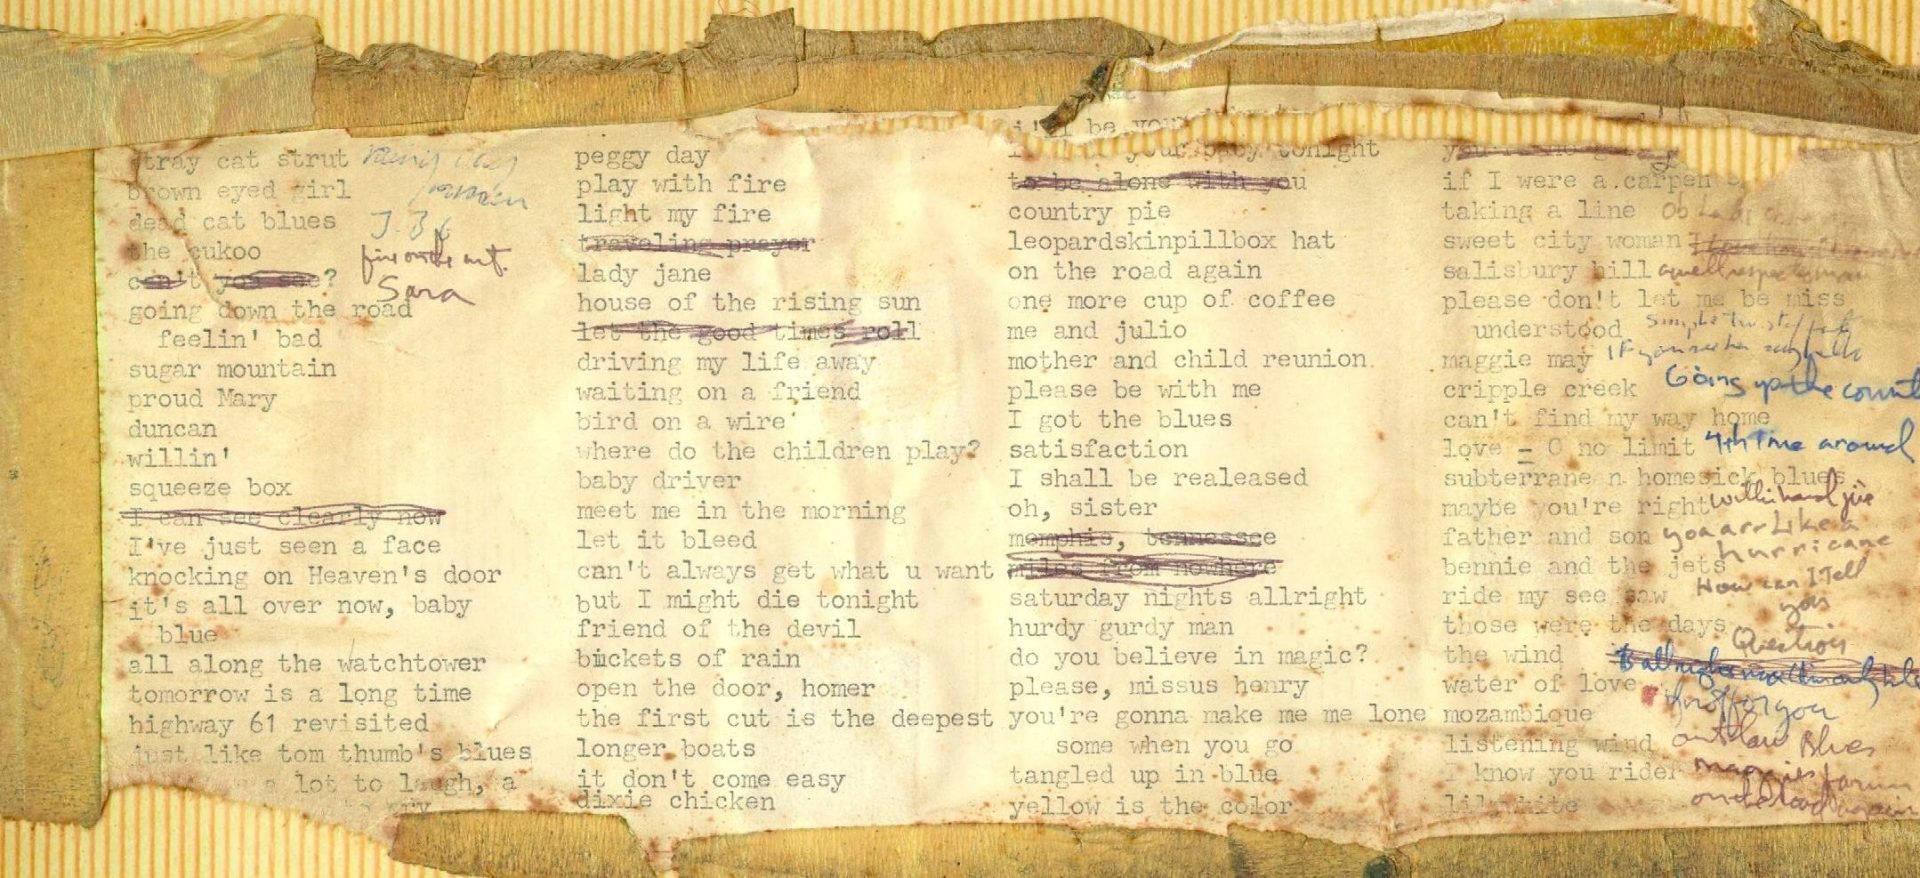 stray cat strut
brown eyed girl
dead cat blues
the cukoo
can't you see?
going down the road
feelin' bad
sugar mountain
proud Mary
duncan
willin'
squeeze box
I can see clearly now
I've just seen a face
knocking on Heaven's door
it's all over now, baby
blue
all along the watchtower
tomorrow is a long time
highway 61 revisited
just like tom thumb's blues
a lot to laugh, a
fire on the mt.
Sara
peggy day
play with fire
light my fire
traveling prayer
lady jane
house of the rising sun
let the good times roll
driving my life away
waiting on a friend
bird on a wire
where do the children play?
baby driver
meet me in the morning
let it bleed
can't always get what u want
but I might die tonight
friend of the devil
buckets of rain
open the door, homer
the first cut is the deepest
longer boats
it don't come easy
dixie chicken
be your
your baby tonight
to be alone with you
country pie
leopardskinpillbox hat
on the road again
one more cup of coffee
me and julio
mother and child reunion
please be with me
I got the blues
satisfaction
I shall be realeased
oh, sister
memphis, tennessee
miles from nowhere
saturday nights allright
hurdy gurdy man
do you believe in magic?
please, missus henry
you're gonna make me me lone
some when you go
tangled up in blue
yellow is the color
if I were a carpen
taking a line
sweet city woman
salisbury hill
please don't let me be miss
understood
maggie may
cripple creek Going up the count
can't find my way home
love = 0 no limit 4th time around
subterranean homesick blues
maybe you're right
father and son you are Like a
hurricane
bennie and the jets
How can I Tell
you
ride my see saw
those were the days
Question
the wind
water of love
mozambique
listening wind outlaw Blues
I know you rider maggies farm
lily white on the road again